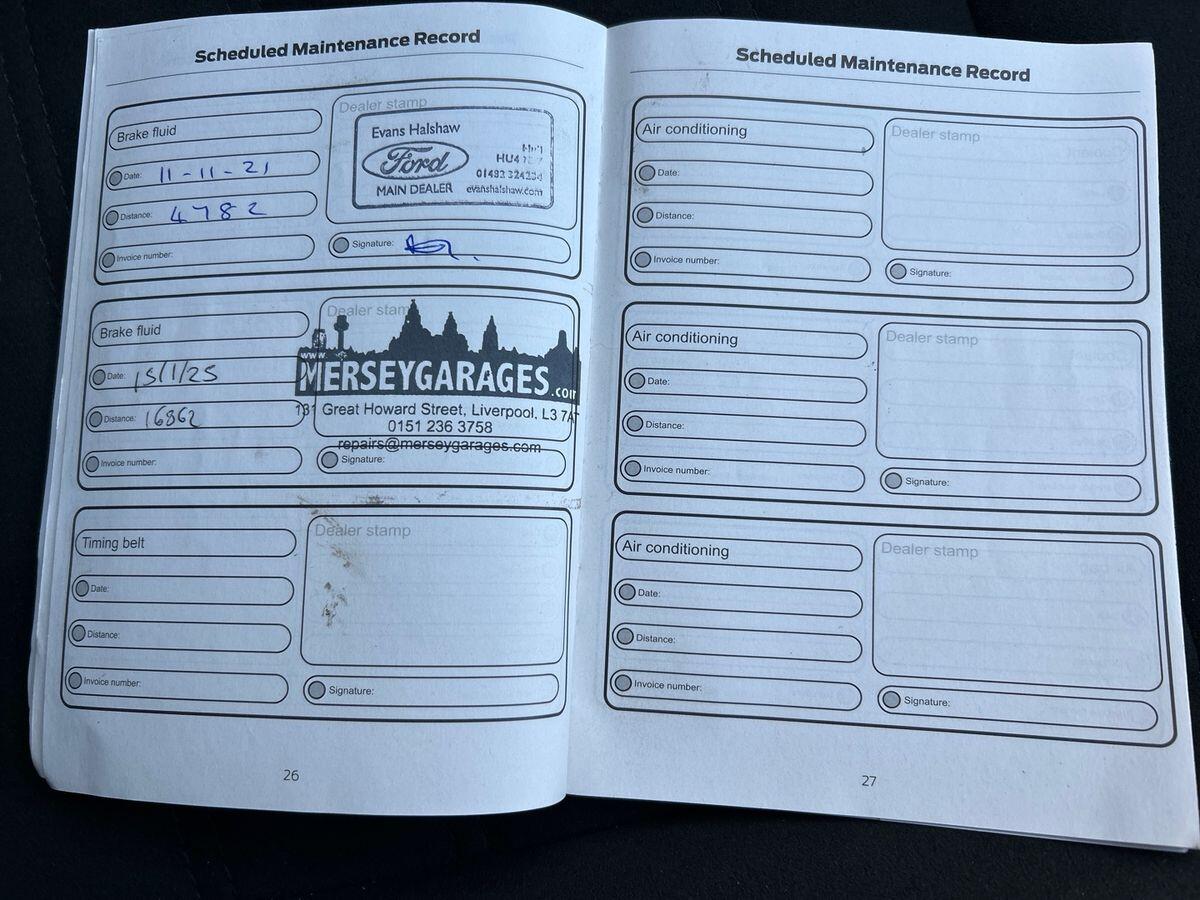 Scheduled Maintenance Record
Brake fluid
Date: 11-11-21
Distance: 4782
Invoice number:
Dealer stamp
Evans Halshaw
Ford
MAIN DEALER
HU4
evanshalshaw.com
Signature:
Brake fluid
Date: 15/1/25
Distance: 16862
Invoice number:
Dealer stamp
www.
MERSEYGARAGES.com
131 Great Howard Street, Liverpool, L3 7AT
0151 236 3758
repairs@merseygarages.com
Signature:
Timing belt
Date:
Distance:
Invoice number:
Dealer stamp
Signature:
26
Scheduled Maintenance Record
Air conditioning
Date:
Distance:
Invoice number:
Dealer stamp
Signature:
Air conditioning
Date:
Distance:
Invoice number:
Dealer stamp
Signature:
Air conditioning
Date:
Distance:
Invoice number:
Dealer stamp
Signature:
27